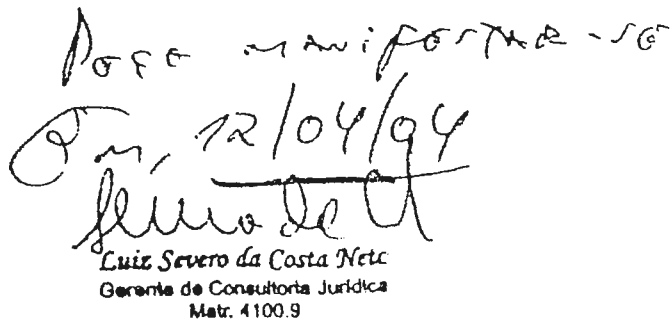 manifestar-se
Em, 12/04/94
Luiz Severo da Costa Neto
Gerente de Consultoria Jurídica
Matr. 4100.9